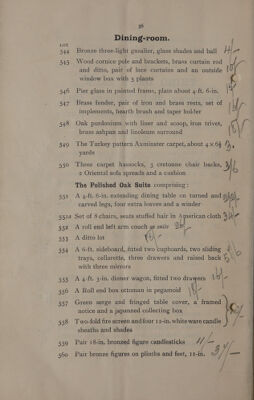 26
Dining-room.
LOT
344 Bronze three-light gasalier, glass shades and ball 4/-
345 Wood cornice pole and brackets, brass curtain rod
and ditto, pair of lace curtains and an outside
window box with 5 plants
346 Pier glass in painted frame, plate about 4-ft. 6-in.
347 Brass fender, pair of iron and brass rests, set of
implements, hearth brush and taper holder
348 Oak purdonium with liner and scoop, iron trivet,
brass ashpan and linoleum surround
349 The Turkey pattern Axminster carpet, about 4 x 6½
yards
350 Three carpet hassocks, 3 cretonne chair backs, 3/6
2 Oriental sofa spreads and a cushion
The Polished Oak Suite comprising:
351 A 4-ft. 6-in. extending dining table on turned and
carved legs, four extra leaves and a winder
351A Set of 8 chairs, seats stuffed hair in American cloth
352 A roll end left arm couch as suite
353 A ditto lot
354 A 6-ft. sideboard, fitted two cupboards, two sliding
trays, cellarette, three drawers and raised back
with three mirrors
355 A 4-ft. 3-in. dinner wagon, fitted two drawers
356 A Roll end box ottoman in pegamoid
357 Green serge and fringed table cover, a framed
notice and a japanned collecting box
358 Two-fold fire screen and four 12-in. white ware candle
sheaths and shades
359 Pair 18-in. bronzed figure candlesticks 11/-
360 Pair bronze figures on plinths and feet, 12-in.